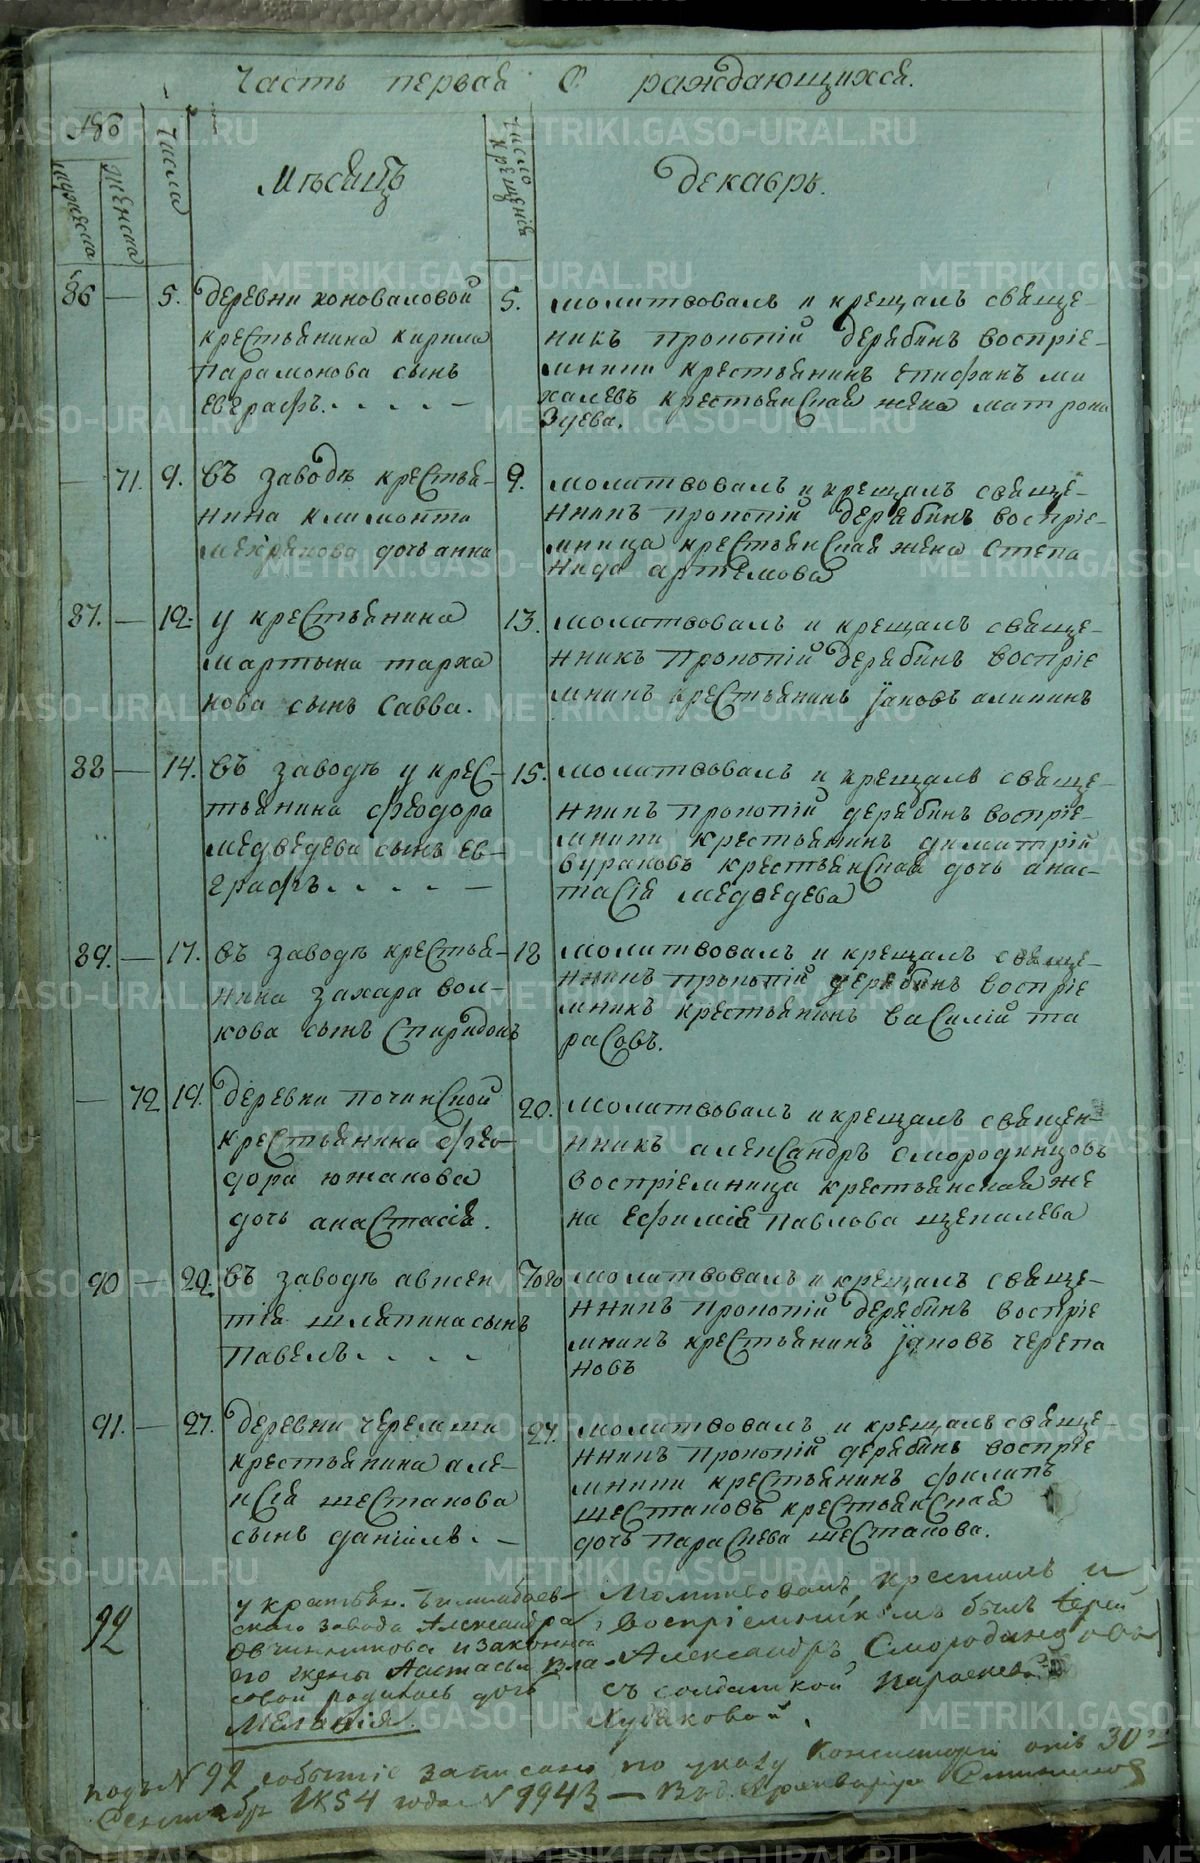 Часть первая О раждающихся.
мужеска
женска
числа
Мѣсяцъ
число крещенія
декабрь.
86 — 5. деревни коноваловой
крестьянина кирила
парамонова сынъ
евграфъ. . . . . —
5. молитвовалъ и крещалъ свяще-
никъ прокопій дерябинъ воспріе-
мники крестьянинъ епифанъ ми
халевъ крестьянская жена матрона
Зуева.
— 71. 9. въ заводѣ крестья-
нина климонта
мехрякова дочь анна
9. молитвовалъ и крещалъ свяще-
нникъ прокопій дерябинъ воспріе-
мница крестьянская жена степа
нида артемова
87. — 12. у крестьянина
мартына тарха
нова сынъ савва.
13. молитвовалъ и крещалъ свяще-
нникъ прокопій дерябинъ воспріе
мникъ крестьянинъ їаковъ аликинъ
88 — 14. въ заводѣ у крес-
тьянина феодора
медведева сынъ ев-
графъ. . . . . —
15. молитвовалъ и крещалъ свяще-
нникъ прокопій дерябинъ воспріе-
мники крестьянинъ димитрій
бураковъ крестьянская дочь анас-
тасія медведева
89. — 17. въ заводѣ крестья-
нина захара вол-
кова сынъ спиридонъ
18 молитвовалъ и крещалъ свяще-
нникъ прокопій дерябинъ воспріе
мникъ крестьянинъ василій та
расовъ.
— 72 19. деревни починской
крестьянина фео-
дора южакова
дочь анастасія.
20. молитвовалъ и крещалъ священ-
нникъ александръ смородинцовъ
воспріемница крестьянская же
на ефимія павлова щепалева
90 — 20. въ заводѣ авксен
тія шляпина сынъ
павелъ. . . .
того молитвовалъ и крещалъ свяще-
нникъ прокопій дерябинъ воспріе
мникъ крестьянинъ їаковъ черепа
новъ
91. — 27. деревни черемши
крестьянина але-
ксія шестакова
сынъ даніилъ. —
27. молитвовалъ и крещалъ свяще-
нникъ прокопій дерябинъ воспріе
мники крестьянинъ филипъ
шестаковъ крестьянская
дочь параскева шестакова.
92 у крестьян. Билимбаев-
скаго завода Александра
Овчинникова и законной
его жены Настасьи Вла-
совой родилась дочь
Меланія.
Молитвовалъ, крестилъ и
воспріемникомъ былъ Іерей
Александръ Смородинцовъ
съ солдаткой Параскевой
Кудаковой.
подъ N 92 событіе записано по указу Консисторіи отъ 30го
Сентября 1854 года N 9943 —
METRIKI.GASO-URAL.RU